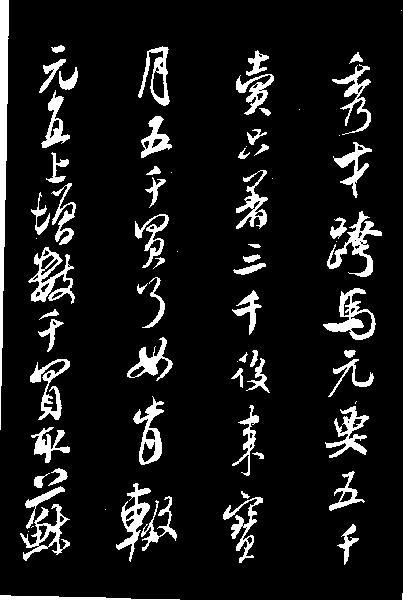 秀才跨馬元要五千
賣只著三千後来寶
月五千買了如肯輟
元直上增數千買取蘇